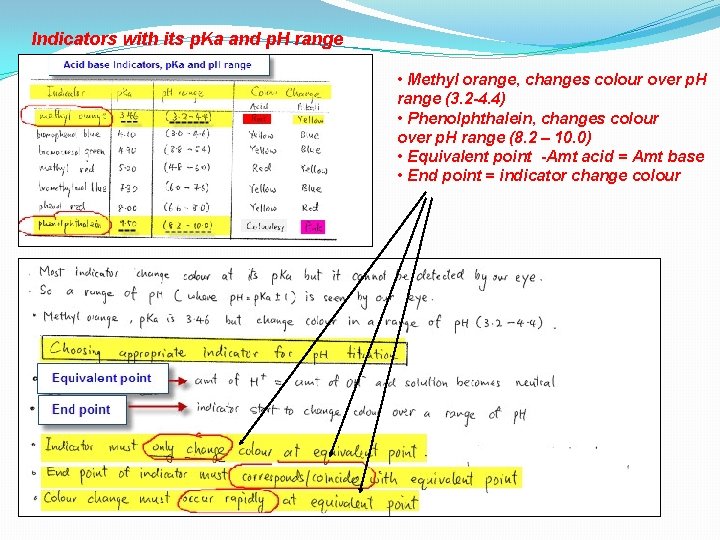 Indicators with its p.Ka and p.H range
Acid base Indicators, pKa and pH range
Indicator pKa pH range Colour Change
Acid Alkali
methyl orange 3.46 (3.2-4.4) Red Yellow
bromophenol blue Yellow Blue
green Yellow Blue
methyl red 5.00 Red Yellow
bromothymol blue (6.0-7.6) Yellow Blue
phenol red 8.00 Yellow Red
phenolphthalein 9.50 (8.2-10.0) Colourless Pink
• Methyl orange, changes colour over p.H
range (3.2-4.4)
• Phenolphthalein, changes colour
over p.H range (8.2 – 10.0)
• Equivalent point -Amt acid = Amt base
• End point = indicator change colour
• Most indicator change colour at its pKa but it cannot be detected by our eye.
- So a range of pH (where pH = pKa ± 1) is seen by our eye.
• Methyl orange, pKa is 3.46 but change colour in a range of pH (3.2-4.4).
Choosing appropriate indicator for pH titration
Equivalent point amt of H+ = amt of OH- and solution becomes neutral
End point indicator start to change colour over a range of pH
• Indicator must only change colour at equivalent point.
End point of indicator must corresponds/coincide with equivalent point
Colour change must occur rapidly at equivalent point